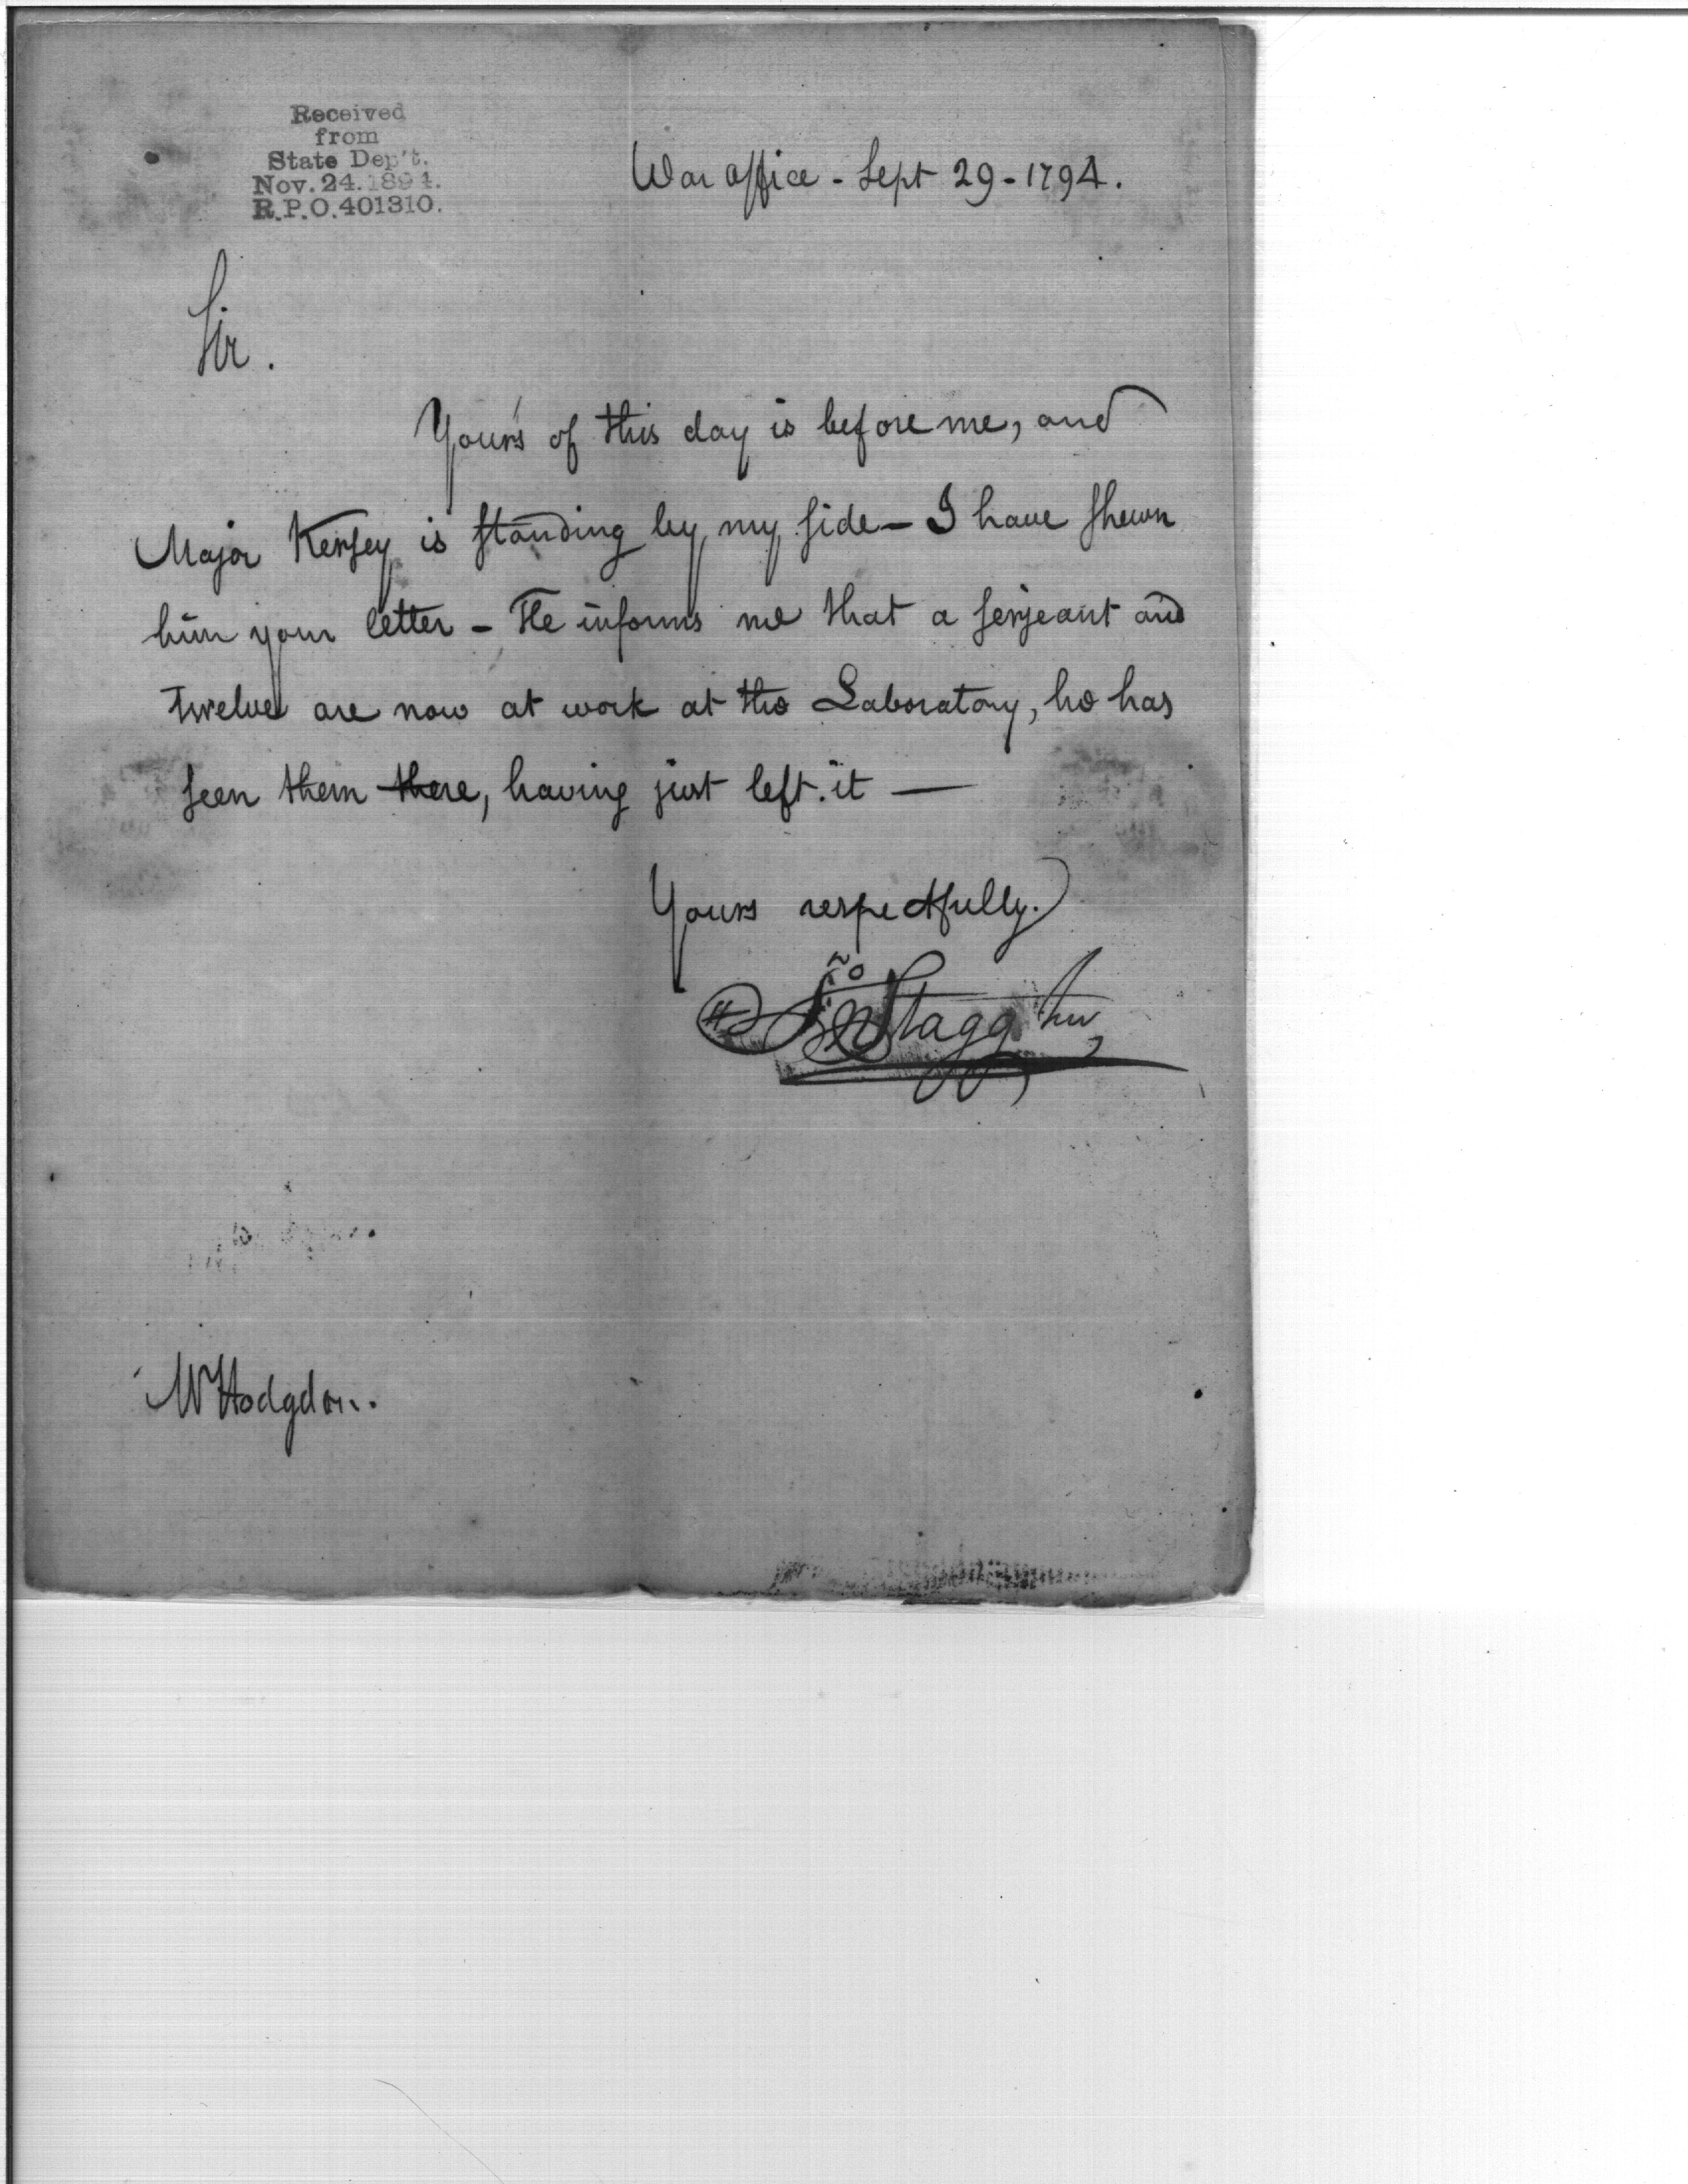 Received
from
State Dep't.
Nov. 24. 1894.
R.P.O. 401310.
War Office - Sept 29 - 1794.
Sir.
Yours of this day is before me, and
Major Kersey is standing by my side - I have shewn
him your letter - He informs me that a serjeant and
twelve are now at work at the Laboratory, he has
seen them there, having just left it —
Yours respectfully.
Jno Stagg Jur
Mr Hodgdon.